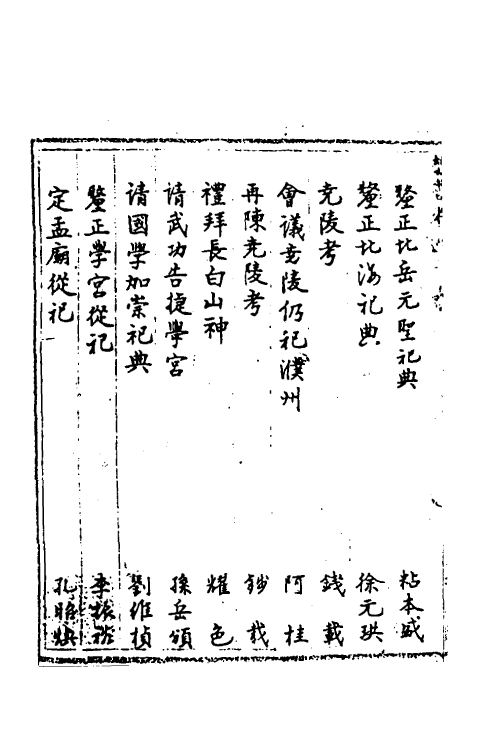 釐正北岳元聖祀典　粘本盛
釐正北海祀典　徐元珙
堯陵考　錢載
會議堯陵仍祀濮州　阿桂
再陳堯陵考　錢載
禮拜長白山神　耀色
請武功告捷學宮　孫岳頒
請國學加崇祀典　劉維禎
釐正學宮從祀　李振裕
定孟廟從祀　孔昭煥